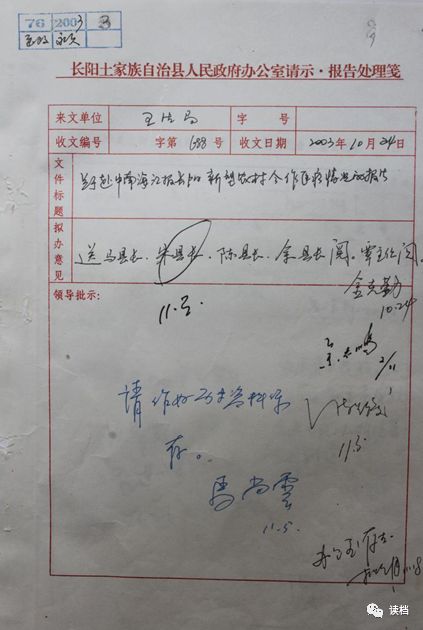 76 2003 3
长阳土家族自治县人民政府办公室请示·报告处理笺
来文单位 卫生局 字号
收文编号 字第 688 号 收文日期 2003年10月24日
文件标题
关于赴中南海汇报长阳新型农村合作医疗情况的报告
拟办意见
送马县长、朱县长、陈县长、余县长阅。覃主任阅。
金克勤
10.24
领导批示:
11.3.
2/11
请作好历史资料保
存。
马尚云
11.5.
11.5
11.8
读档